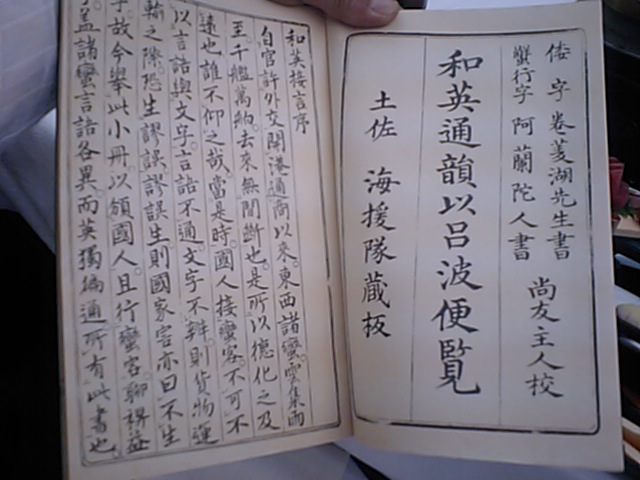 倭字 巻菱湖先生書
蠻行字 阿蘭陀人書
尚友主人校
和英通韻以呂波便覧
土佐 海援隊蔵板
和英接言序
自官許外交開港通商以来。東西諸蠻。雲集雨
至。千艦萬舶。去来無間断也。是所以德化之及
遠也。誰不仰之哉。當是時。國人接蠻客。不可不
以言語與文字。言語不通。文字不辨。則貨物運
輸之際。恐生謬誤。謬誤生。則國家害亦曰不生
乎。故今舉此小冊。以頒國人且行蠻客。聊裨益
蓋諸蠻言語各異。而英獨徧通。所有此書也。